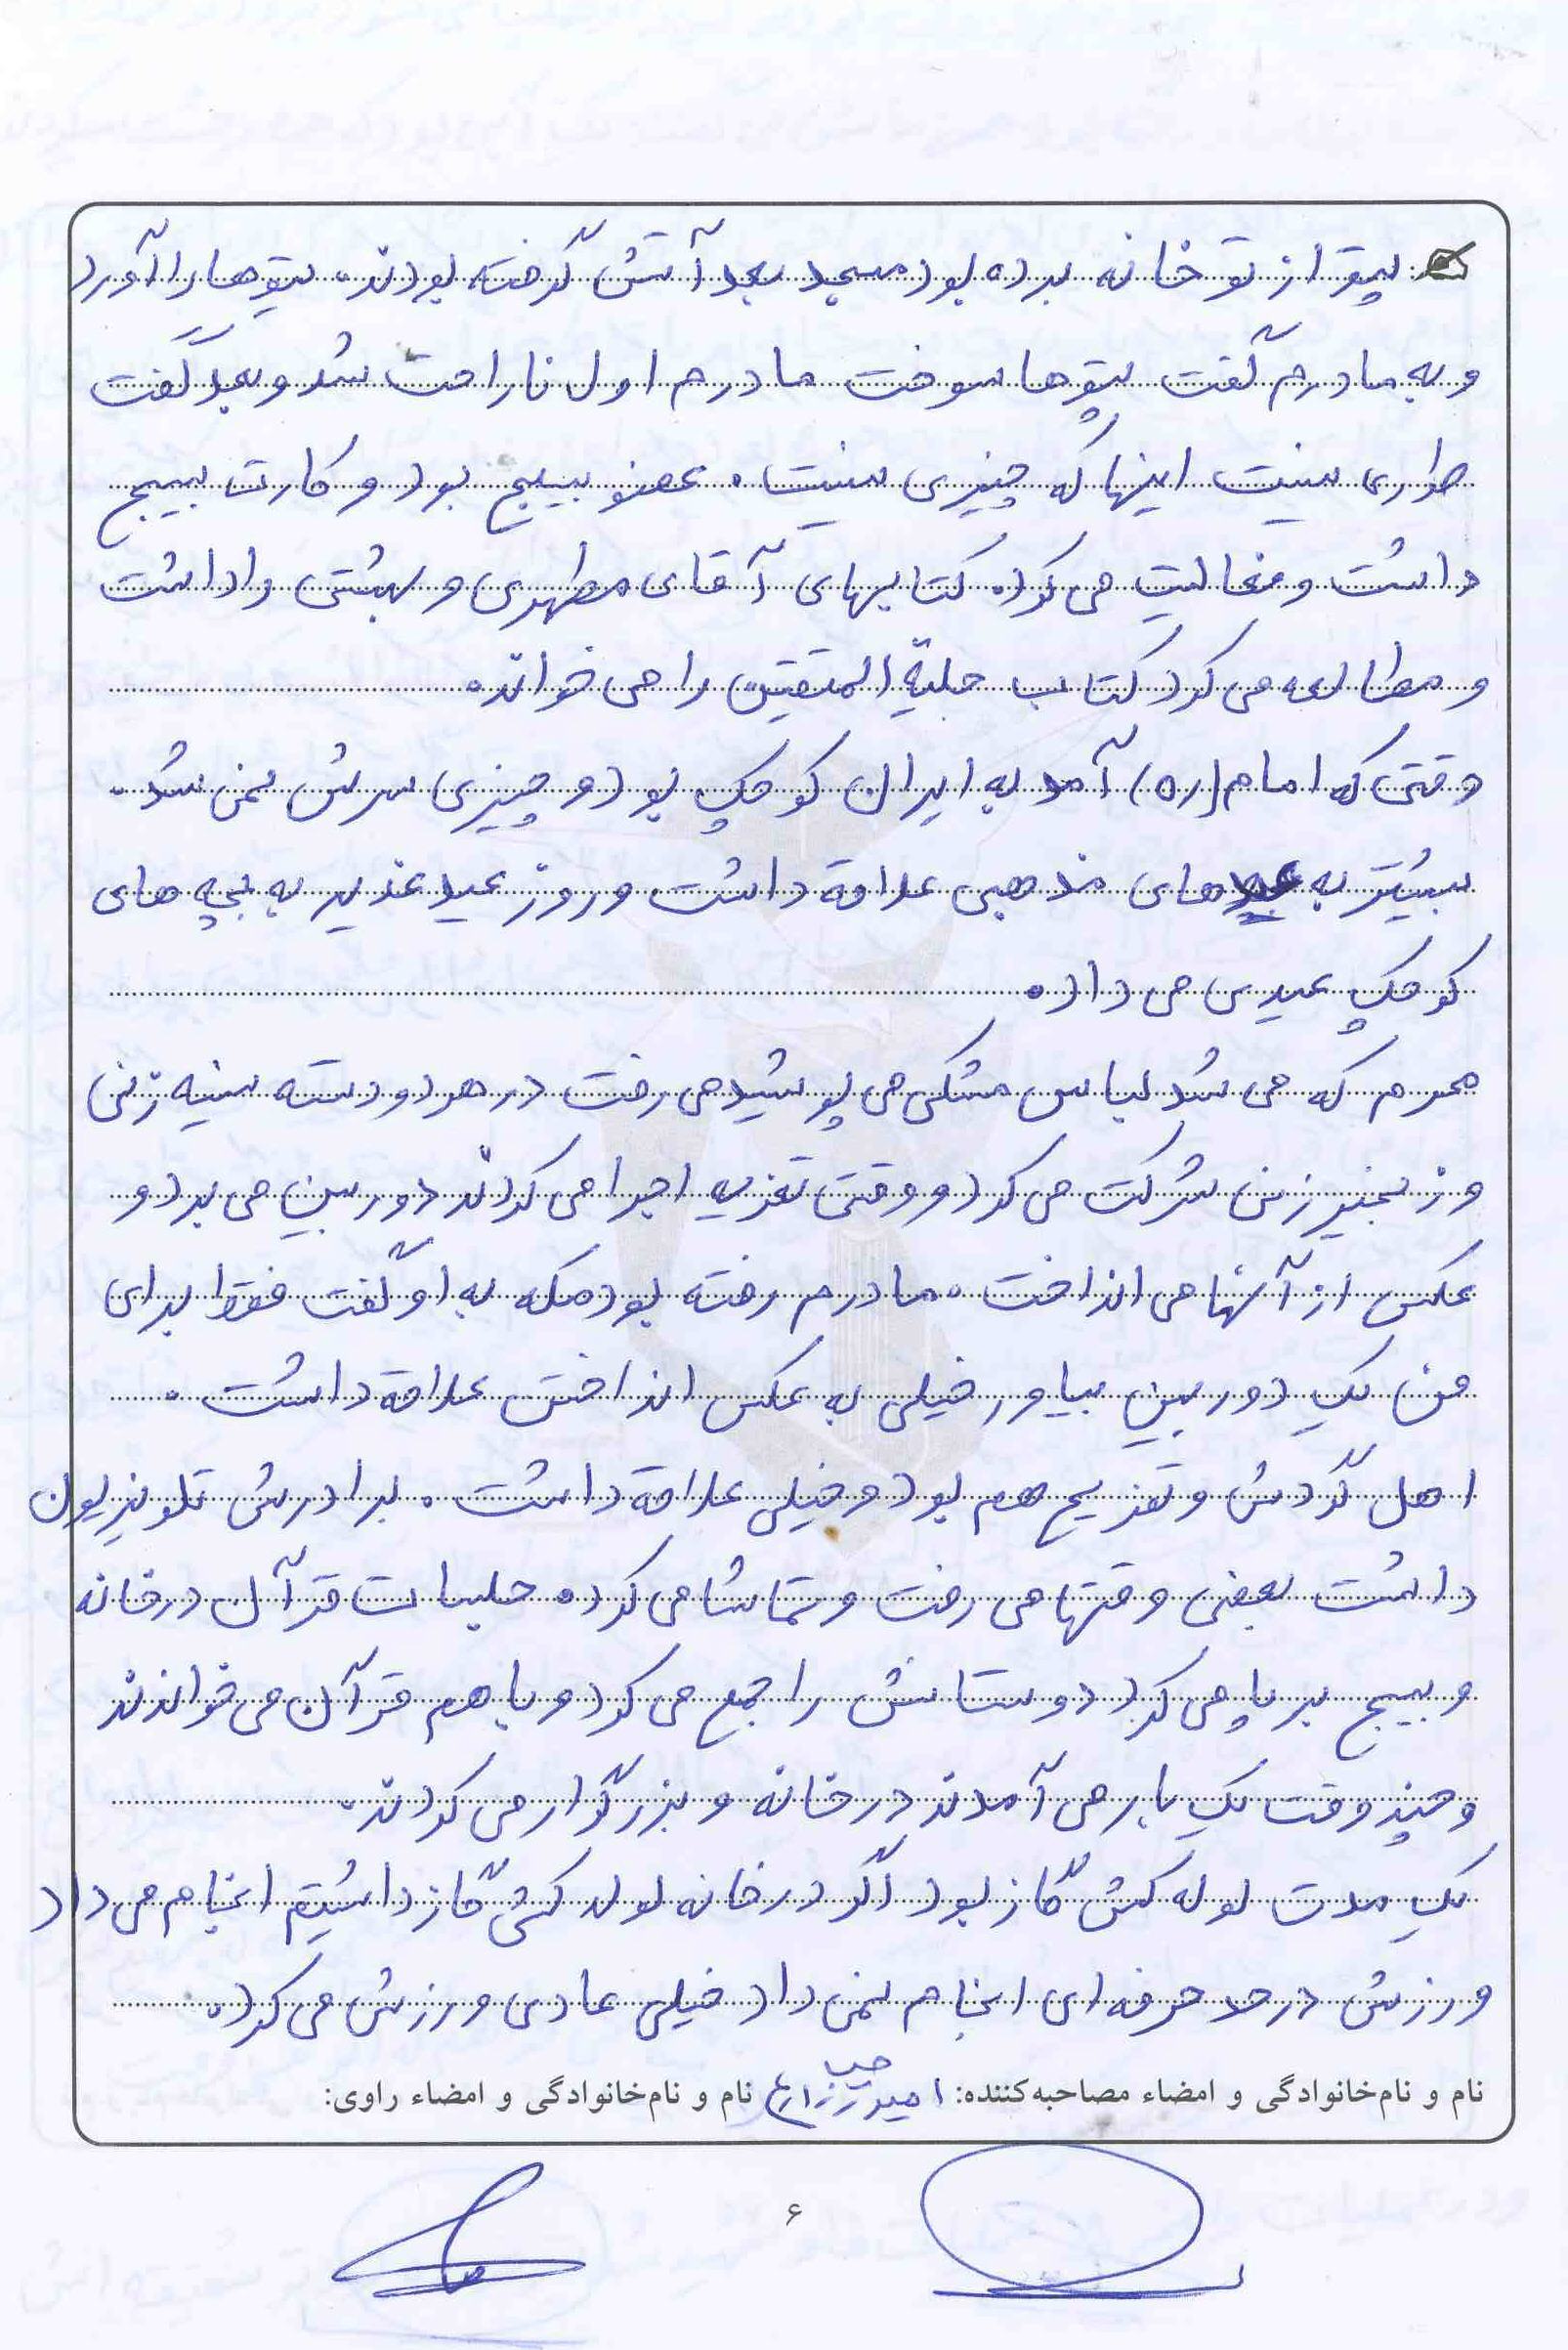 پتو از تو خانه برده بود مسجد بعد آتش گرفته بودند. پتوها را آورد
و به مادرم گفت پتوها سوخت مادرم اول ناراحت شد و بعد گفت
طوری نیست اینها که چیزی نیست. عضو بسیج بود و کارت بسیج
داشت و فعالیت می کرد. کتابهای آقای مطهری و بهشتی را داشت
و مطالعه می کرد کتاب حلیة المتقین را می خواند.
وقتی که امام (ره) آمد به ایران کوچک بود و چیزی سرش نمی شد.
بیشتر به عیدهای مذهبی علاقه داشت و روز عید غدیر به بچه های
کوچک عیدی می داد.
محرم که می شد لباس مشکی می پوشید می رفت در هر دو دسته سینه زنی
و زنجیر زنی شرکت می کرد و وقتی تعزیه اجرا می کردند دوربین می برد و
عکس از آنها می انداخت. مادرم رفته بود مکه به او گفت فقط برای
من یک دوربین بیاور خیلی به عکس انداختن علاقه داشت.
اهل گردش و تفریح هم بود و خیلی علاقه داشت. برادرش تلویزیون
داشت بعضی وقتها می رفت و تماشا می کرد. جلسات قرآن در خانه
و بسیج برپا می کرد دوستانش را جمع می کرد و با هم قرآن می خواندند
و چند وقت یک بار می آمدند در خانه و برگزار می کردند.
یک مدت لوله کش گاز بود اگر در خانه لوله کشی گاز داشتیم انجام می داد
ورزش در حد حرفه ای انجام نمی داد خیلی عادی ورزش می کرد.
نام و نام‌خانوادگی و امضاء مصاحبه‌کننده: نام و نام‌خانوادگی و امضاء راوی:
۶